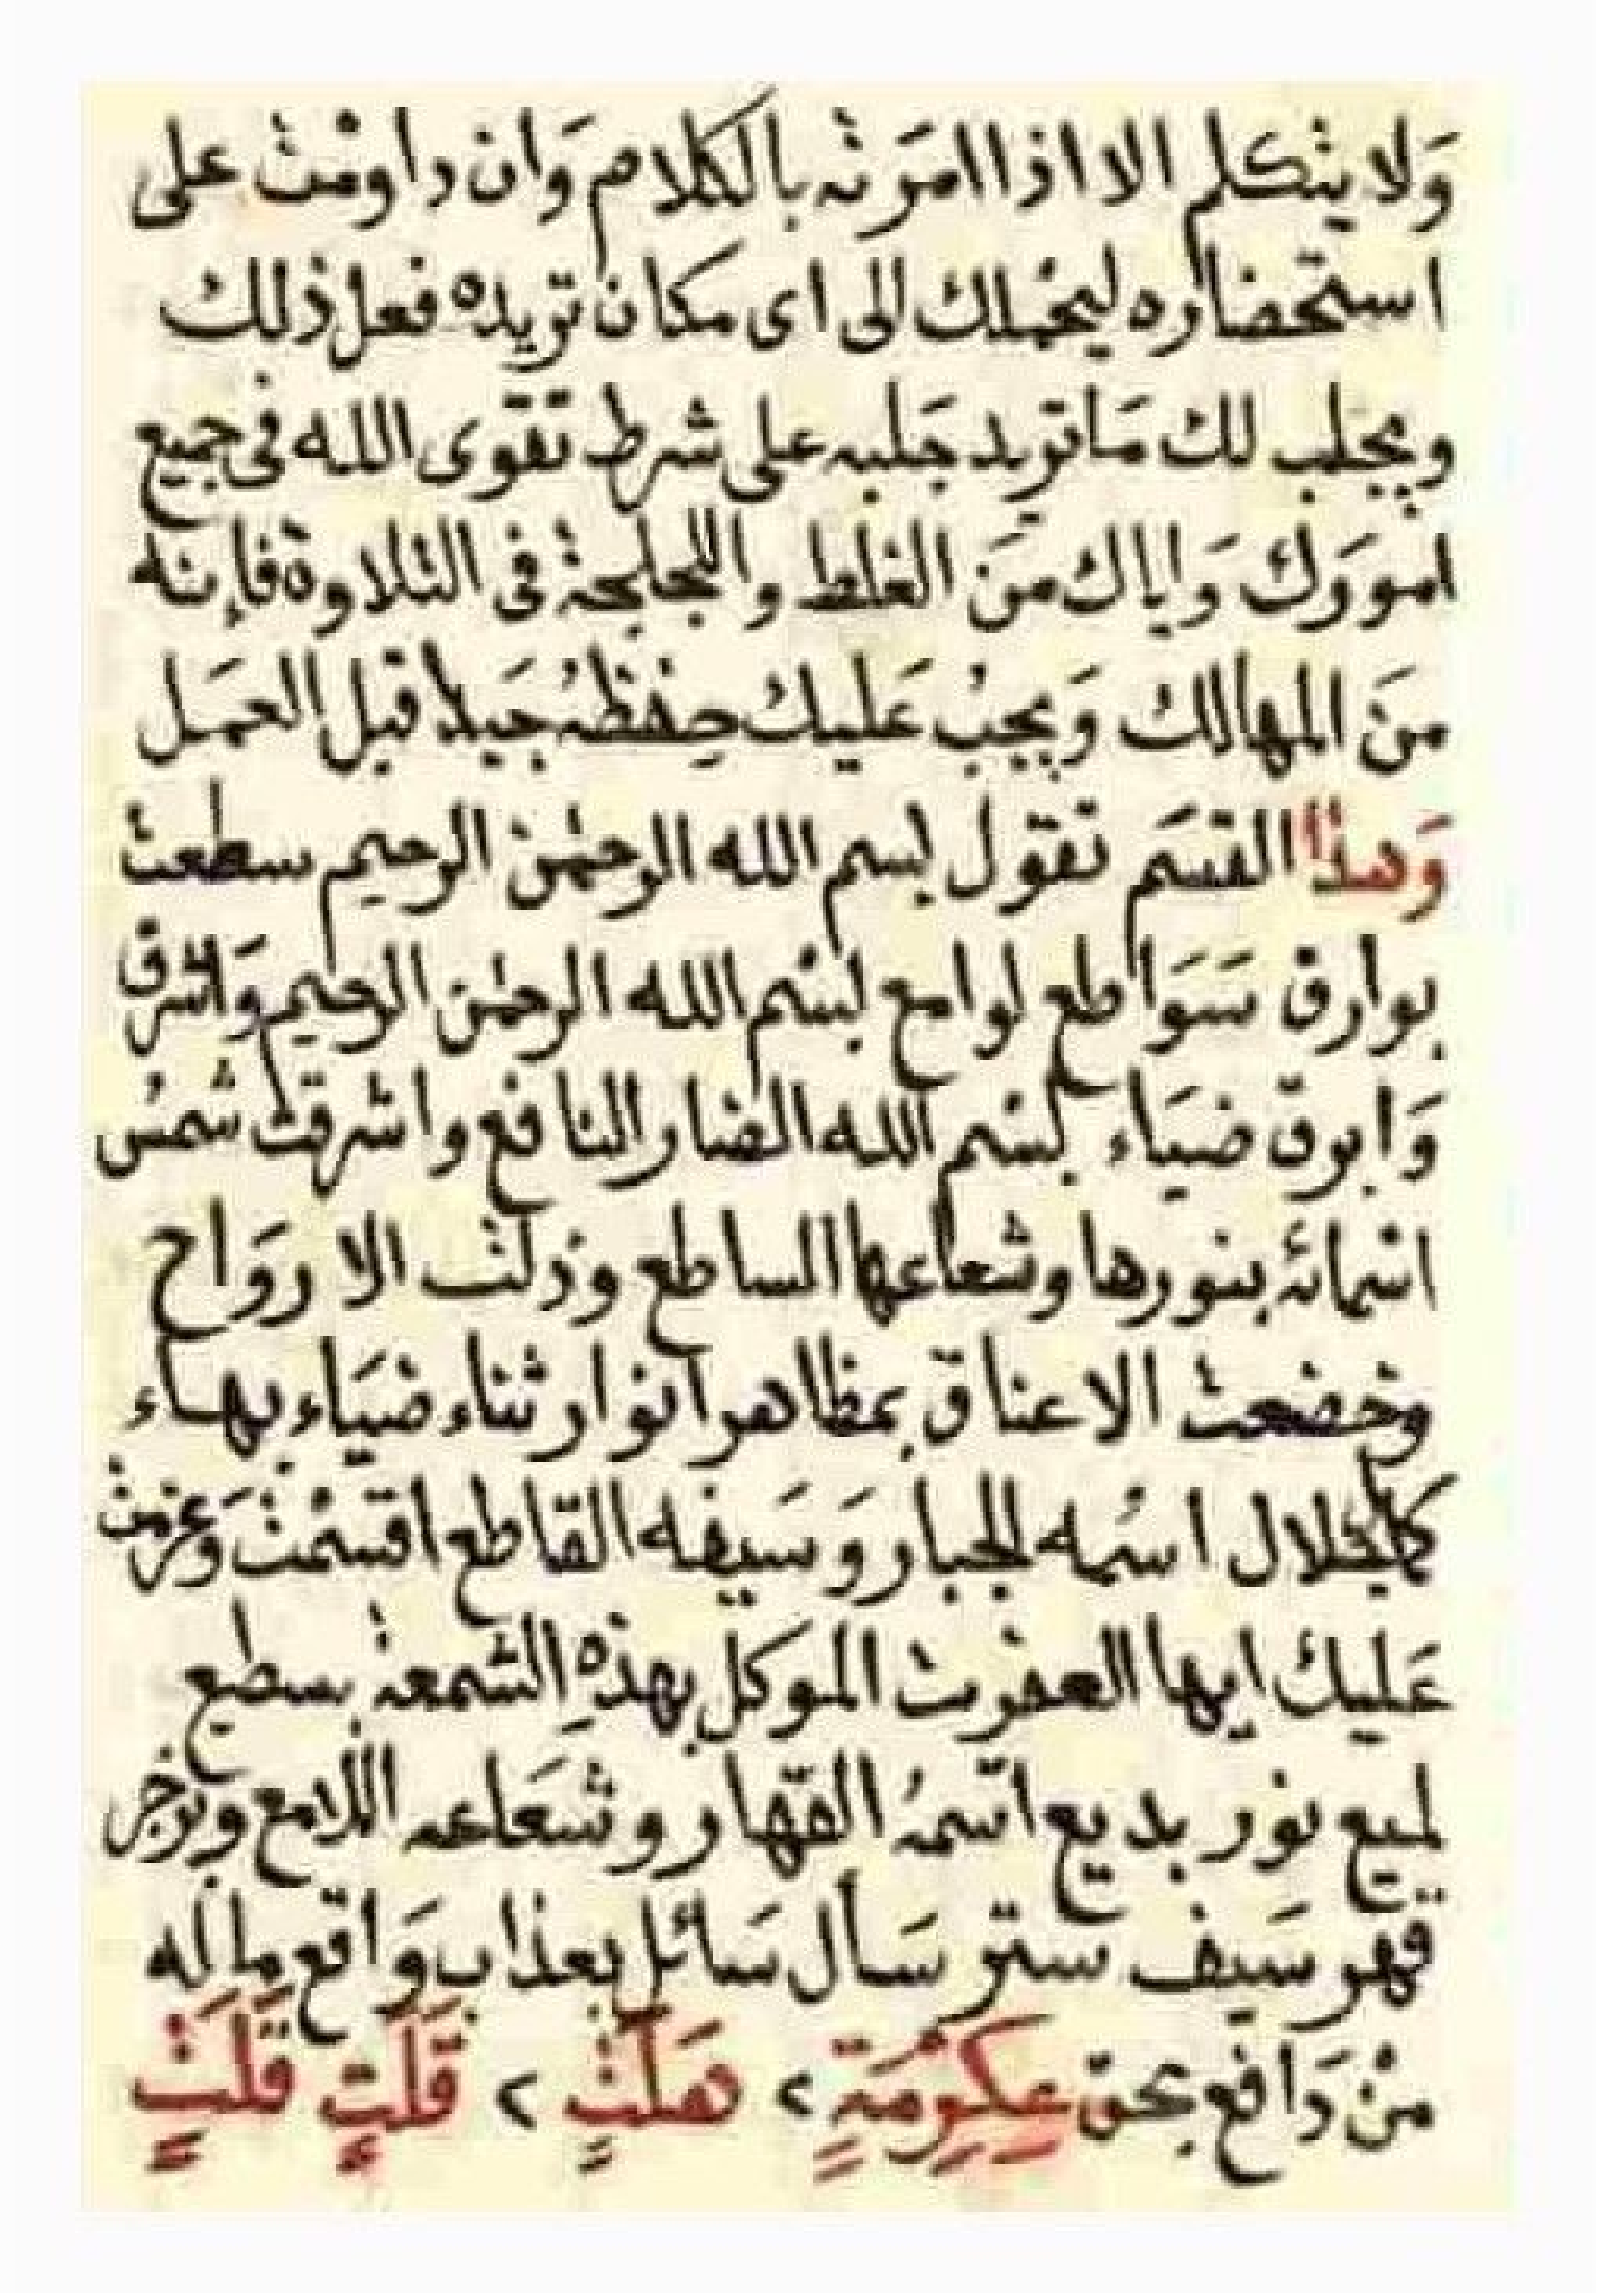 وَلا يتكلم الا اذا امَرته بالكلام وَان داومْت على
استحضاره ليحْملك الى اى مكان تريده فعل ذلك
ويجلب لك مَا تريد جَلبه على شرط تقوى الله فى جميع
امورَك وَاياك منَ الغلط واللجلجة فى التلاوة فإنه
منَ المهالك وَيجبُ عَليكَ حِفظهُ جَيدًا قبل العمَل
وَهذا القسَم تقول بسم الله الرحمٰن الرحيم سطعت
بوارق سَوَاطع لوامع بسْم الله الرحمٰن الرحيم وَاشرق
وَابرق ضيَاء بسْم الله الضار النافع واشرقتْ شمسُ
اسمائه بنورها وشعاعها الساطع وذلتْ الارواح
وخضعت الاعناق بمظاهر انوار ثناء ضيَاء بهاء
كمال جلال اسْمه الجبار وَسَيفه القاطع اقسمْت وَعزمت
عَليكَ ايها العفريت الموَكل بهذهِ الشمعة بسطيع
لميع نور بديع اسْمهُ القهار وشعَاعه اللامع وبزجر
قهر سَيف ستر سَأل سَائل بعذاب وَاقع مَا له
منْ دَافع بحق عِكرِمَةٍ ٢ هَلَتٍ ٢ قَلَتٍ قَلَتٍ